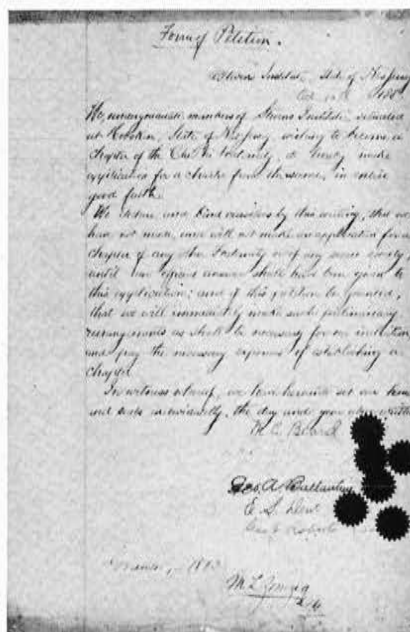 Form of Petition.
Stevens Institute, State of N. Jersey
Oct. 188
We, undergraduate members of Stevens Institute, situated
at Hoboken, State of N. Jersey, wishing to become a
chapter of the Chi Phi Fraternity, do hereby make
application for a charter from the same, in entire
good faith.
We declare and bind ourselves by this writing, that we
have not made, and will not make an application for a
chapter of any other Fraternity or of any secret society,
until an answer shall have been given to
this application; and if this petition be granted,
that we will immediately make such preliminary
arrangements as shall be necessary for our initiation,
and pay the necessary expenses of establishing a
Chapter.
In witness whereof, we have hereunto set our hands
and seals individually, the day and year above
C. Beard
Geo. A. Ballantine
E. S.
Geo.
188
M. L.